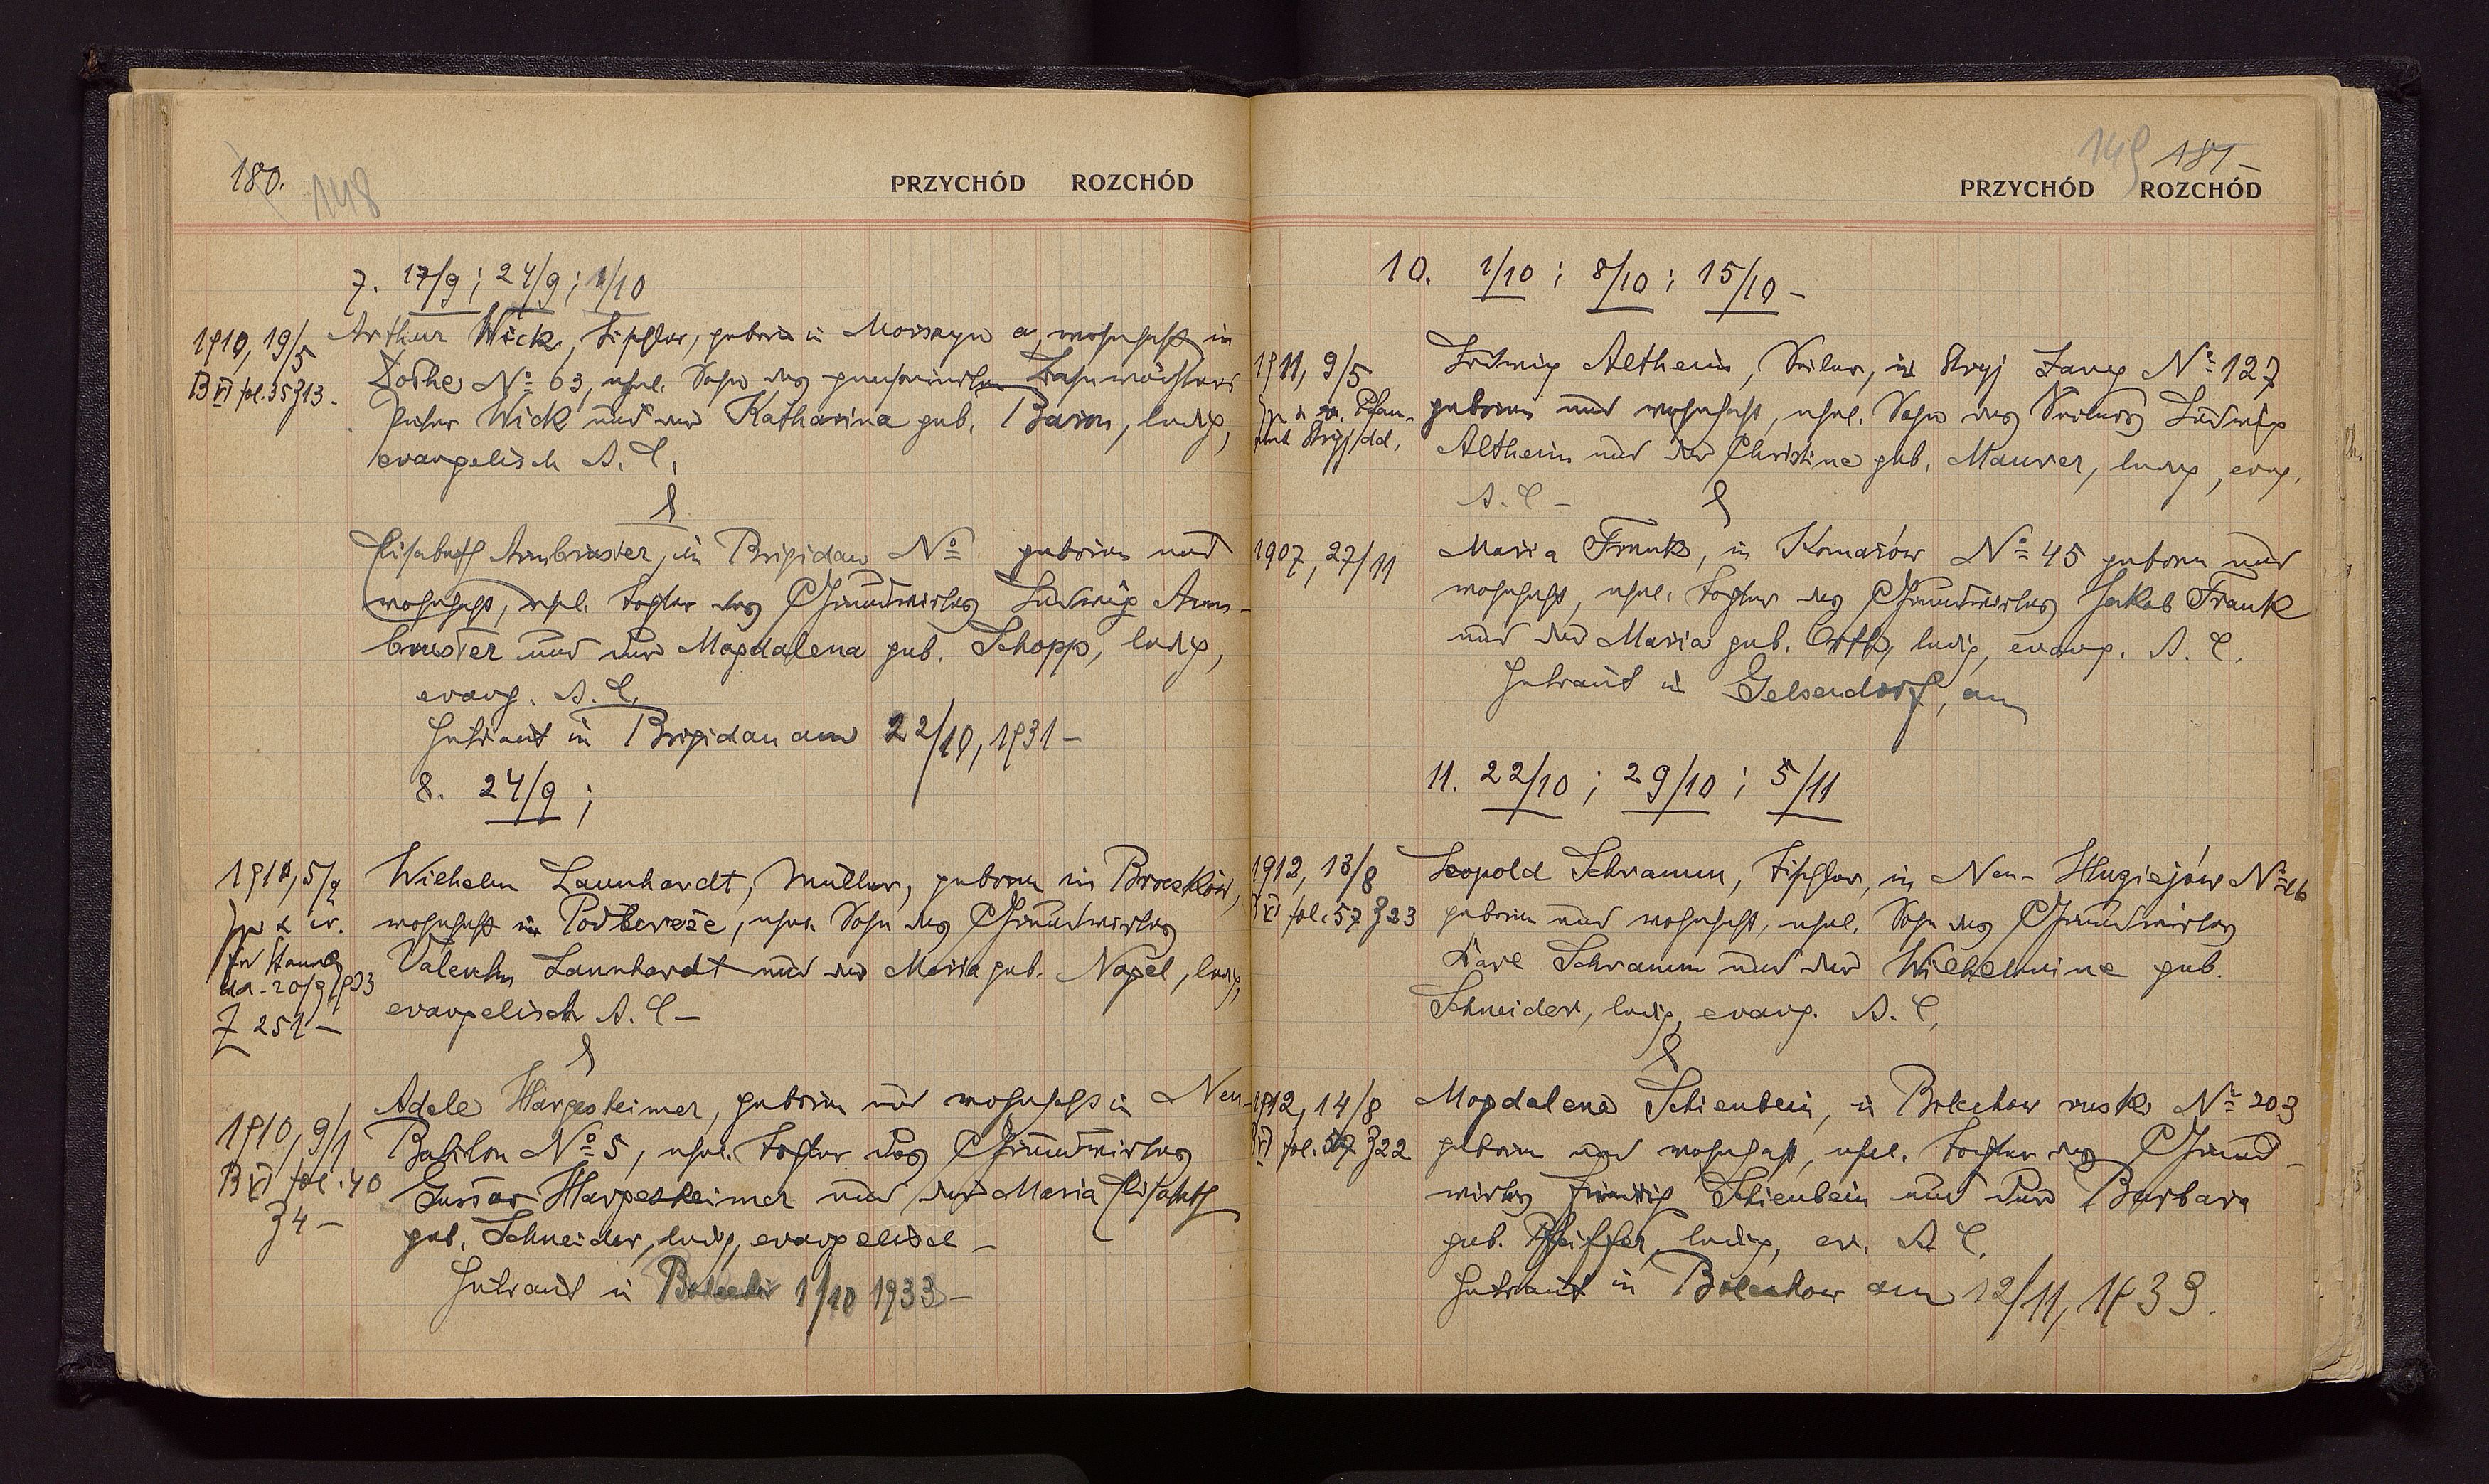 180.
148
PRZYCHÓD ROZCHÓD
7. 17/9; 24/9; 1/10
1910, 19/5
B VI fol. 35 Z 13.
Arthur Wick, Tischler, geboren in Morszyn a, wohnhaft in
No 63, ehel. Sohn des pensionierten Bahnwächters
Peter Wick und der Katharina geb. Baron, ledig,
evangelisch A. C.
&
Elisabeth Armbruster, in Brigidau No geboren und
wohnhaft, ehel. Tochter des Grundwirtes Ludwig Arm-
bruster und der Magdalena geb. Schopp, ledig,
evang. A. C.
Getraut in Brigidau am 22/10, 1931 –
8. 24/9;
1910, 5/9
dd. 20/9 1933
Z 251 –
Wilhelm Launhardt, Müller, geboren in Broczków,
wohnhaft in Podbereże, ehel. Sohn des Grundwirtes
Valentin Launhardt und der Maria geb. Nagel, ledig,
evangelisch A. C –
&
1910, 9/1
B VI fol. 40
Z 4 –
Adele Hargesheimer, geboren und wohnhaft in Neu-
Babilon No 5, ehel. Tochter des Grundwirtes
Gustav Hargesheimer und der Maria Elisabeth
geb. Schneider, ledig, evangelisch –
Getraut in Bolechów 1/10 1933 –
149 181 –
PRZYCHÓD ROZCHÓD
10. 1/10; 8/10; 15/10 –
1911, 9/5
Stryj dd.
Ludwig Altheim, Seiler, in Stryj Łany No 127
geboren und wohnhaft, ehel. Sohn des Seilers Ludwig
Altheim und der Christine geb. Maurer, ledig, evg.
A. C –
&
1907, 27/11
Maria Frank, in Komarów No 45 geboren und
wohnhaft, ehel. Tochter des Grundwirtes Jakob Frank
und der Maria geb. Orth, ledig, evang. A. C.
Getraut in Gelsendorf, am
11. 22/10; 29/10; 5/11
1912, 13/8
VI fol. 57 Z 23
Leopold Schramm, Tischler, in Neu- No 26
geboren und wohnhaft, ehel. Sohn des Grundwirtes
Karl Schramm und der Wilhelmine geb.
Schneider, ledig, evang. A. C.
&
1912, 14/8
VI fol. 57 Z 22
Magdalena Schienbein, in Bolechow rusk. No 203
geboren und wohnhaft, ehel. Tochter des Grund-
wirtes Friedrich Schienbein und der Barbara
geb. Pfeiffer, ledig, ev. A. C.
Getraut in Bolechow am 12/11, 1933.